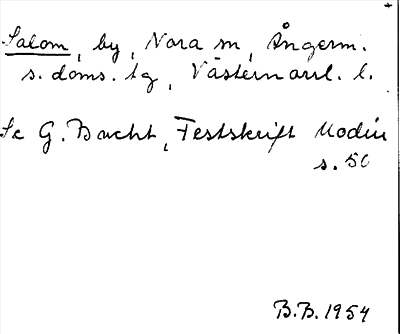 Salom, by, Nora sn, Ångerm.
s. doms. lg, Västernorrl. l.
Se G. Bucht, Festskrift Modin
s. 50
B.B. 1954